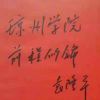 琼州学院
前程似锦
袁隆平